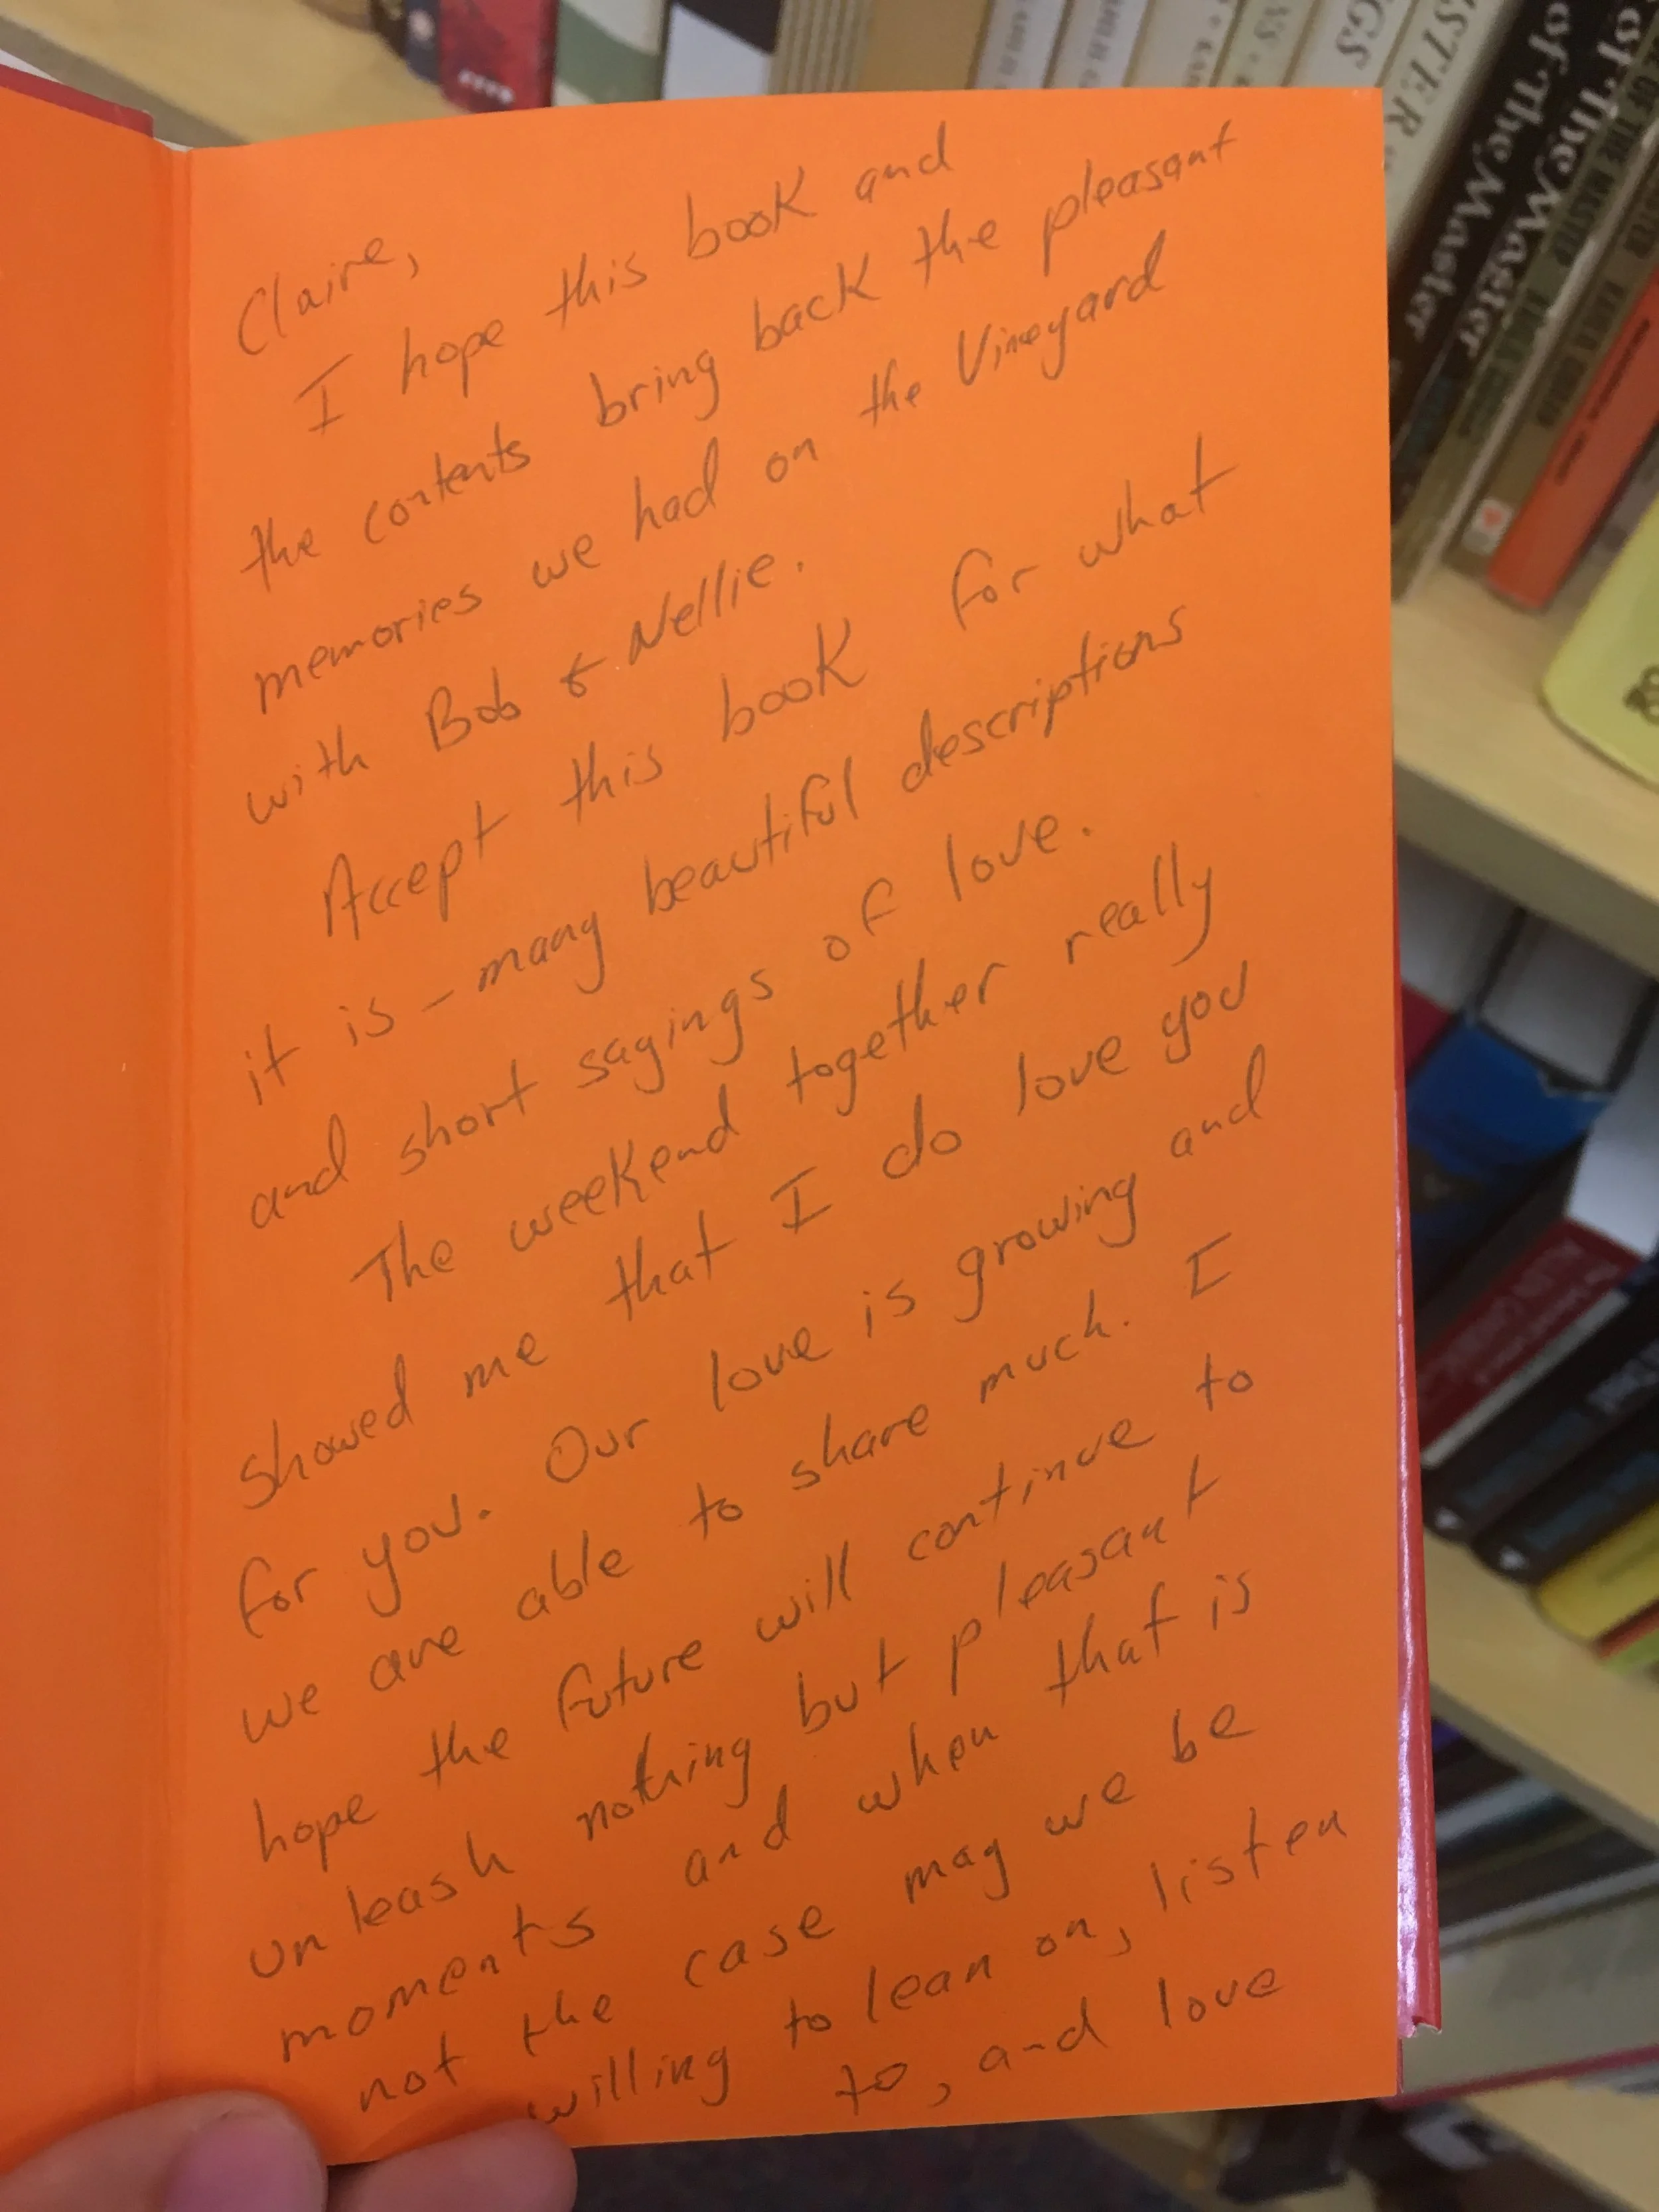 Claire,
I hope this book and
the contents bring back the pleasant
memories we had on the Vineyard
with Bob & Nellie.
Accept this book for what
it is - many beautiful descriptions
and short sayings of love.
The weekend together really
showed me that I do love you
for you. Our love is growing and
we are able to share much. I
hope the future will continue to
unleash nothing but pleasant
moments and when that is
not the case may we be
willing to lean on, listen
to, and love
of The Master